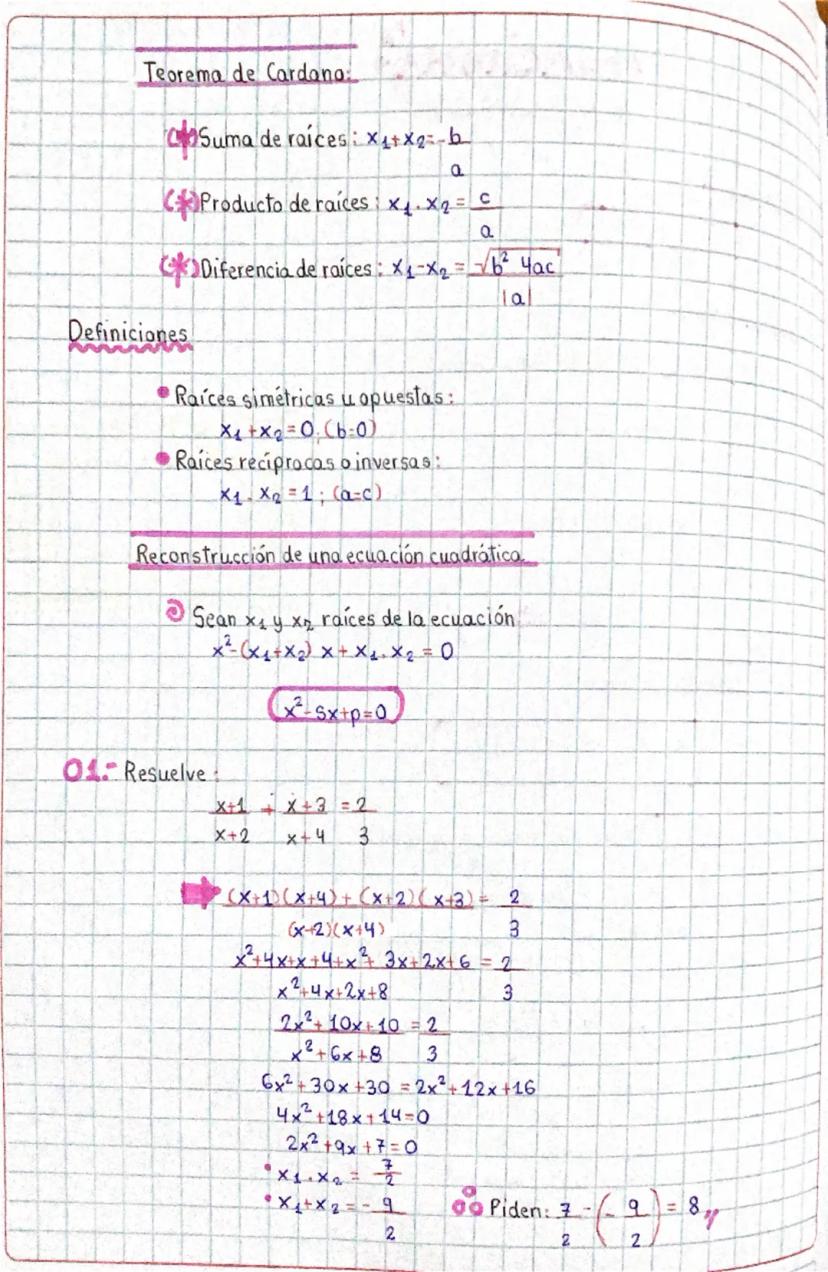 Teorema de Cardano:
(*) Suma de raíces: x₁+x₂=-b/a
(*) Producto de raíces: x₁.x₂=c/a
(*) Diferencia de raíces: x₁-x₂=√(b² 4ac)/|a|
Definiciones
• Raíces simétricas u opuestas:
x₁+x₂=0;(b=0)
• Raíces recíprocas o inversas:
x₁.x₂=1;(a=c)
Reconstrucción de una ecuación cuadrática
Sean x₁ y x₂ raíces de la ecuación
x²-(x₁+x₂) x+x₁.x₂=0
x²-Sx+p=0
01.- Resuelve:
x+1/x+2 + x+3/x+4 = 2/3
(x+1)(x+4)+(x+2)(x+3)/(x+2)(x+4) = 2/3
x²+4x+x+4+x²+3x+2x+6/x²+4x+2x+8 = 2/3
2x²+10x+10/x²+6x+8 = 2/3
6x²+30x+30=2x²+12x+16
4x²+18x+14=0
2x²+9x+7=0
• x₁.x₂=7/2
• x₁+x₂=-9/2
Piden: 7/2-(-9/2)=8